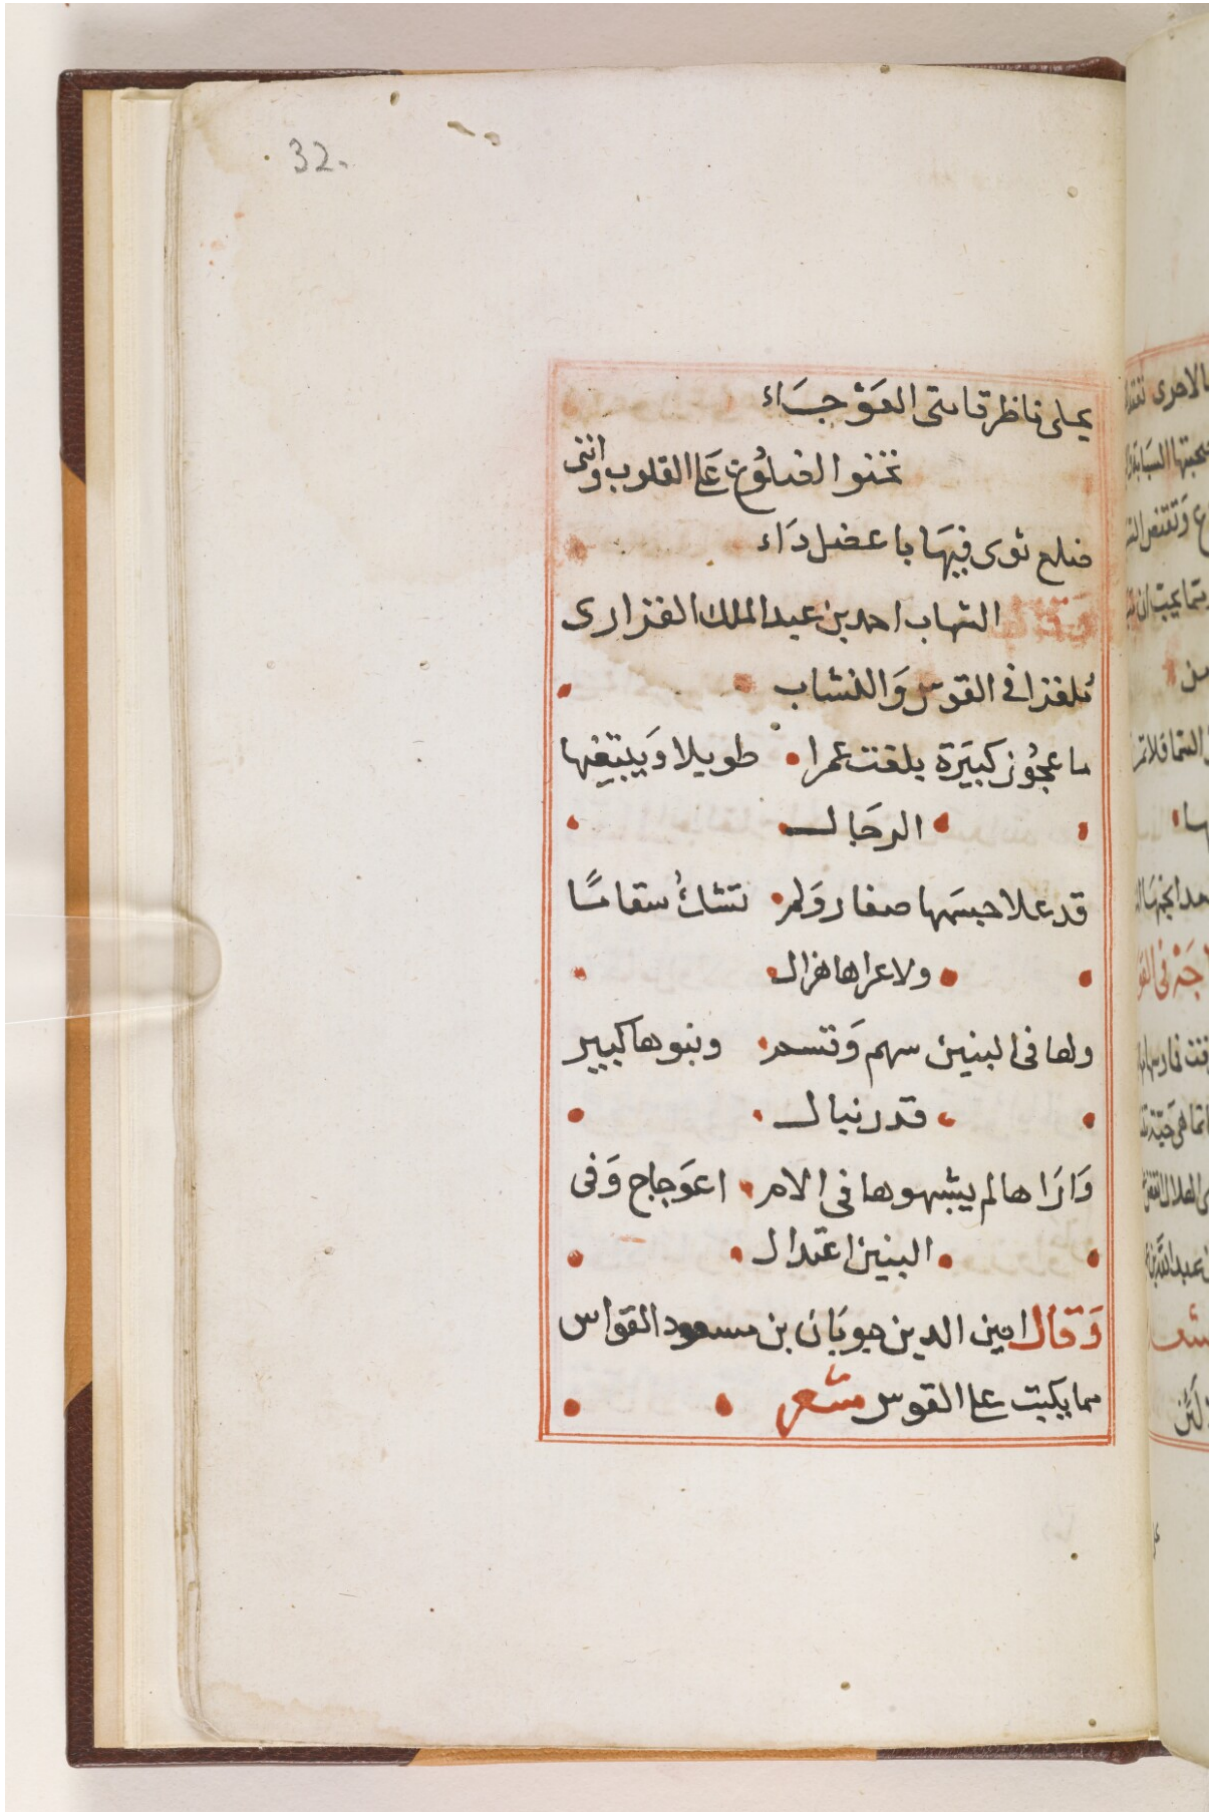 32.
يحلى ناظر قامتى العَوْجَاء
تحنوا الضلُوع عَلى القلوب وانى
ضلع ثوى فيهَا باعضل دَاء
وَقَال الشهاب احمد بن عبد الملك الفزارى
ملغزا فى القوس وَالنشاب
ما عجُوز كبيَرة بلغت عمرا • طويلا وَيبتغيها
• الرجَال •
قد علا جسَمها صفار وَلم • تشكُ سقامًا
• ولا عراها هزال •
ولها فى البنين سهم وَقسم • وبنوها كبير
• قدر نبال •
وَارَاها لم يشبهوها فى الام • اعوَجاج وَفى
• البنين اعتدال •
وَقال امين الدين جوبَان بن مسعود القواس
مما يكتب على القوس شعر •